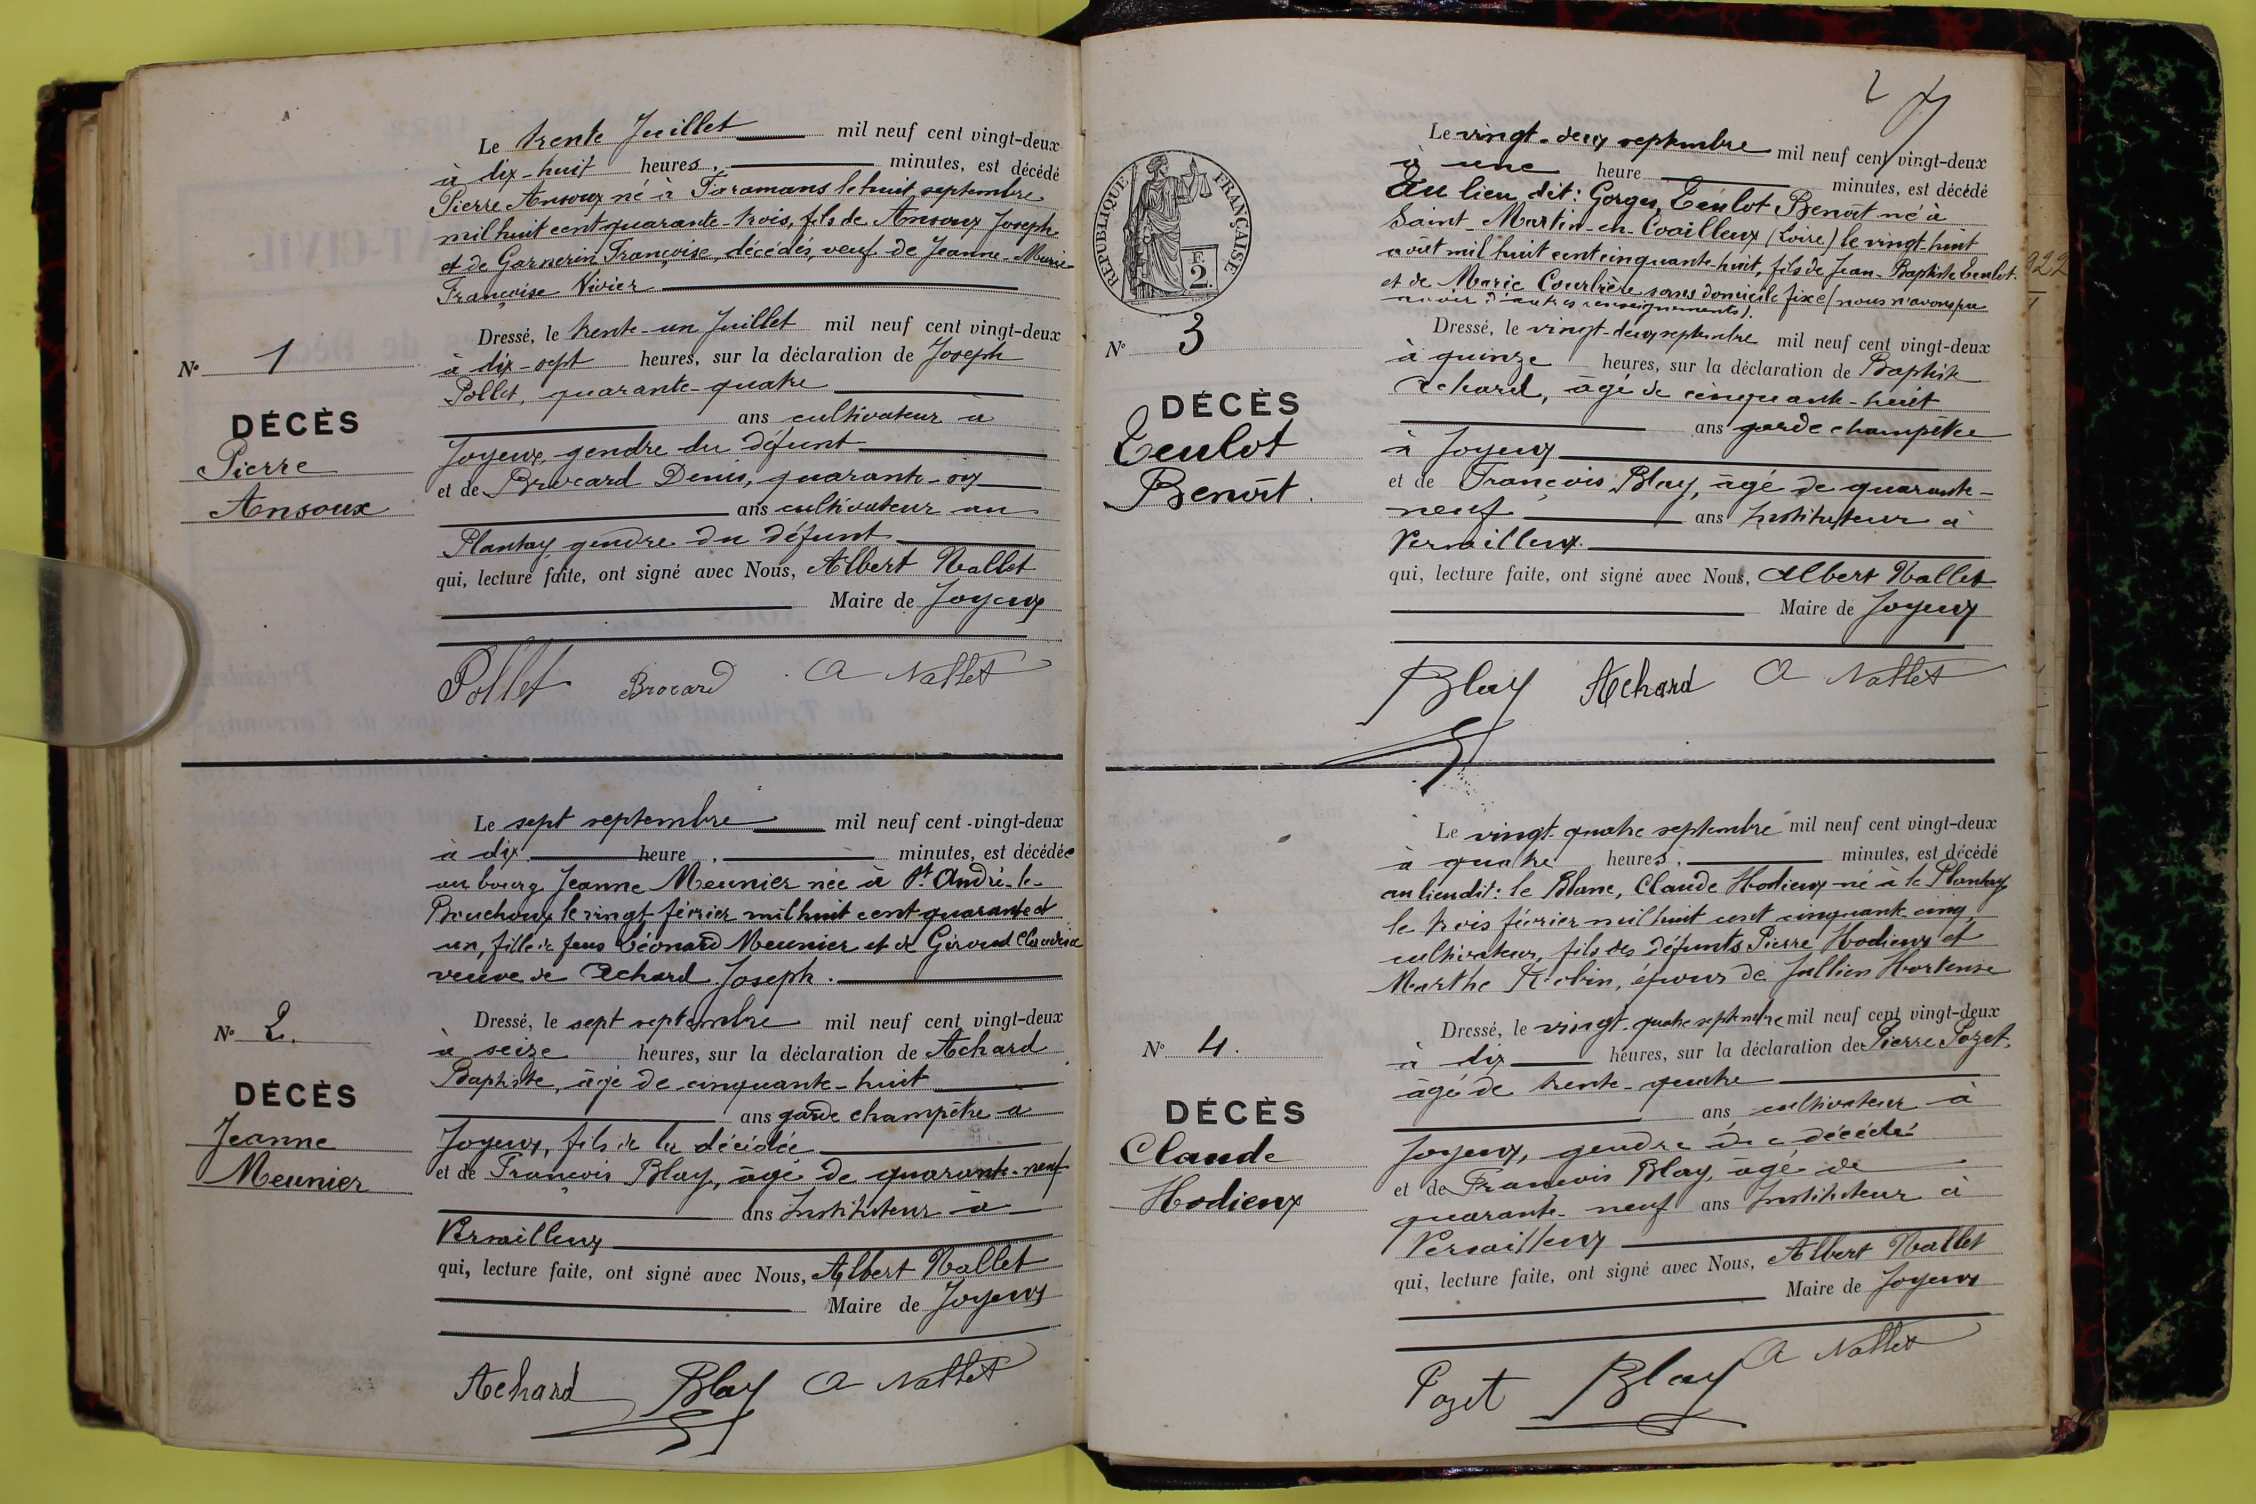 Le trente Juillet mil neuf cent vingt-deux
à dix-huit heures, minutes, est décédé
Pierre Ansoux né à Faramans le huit septembre
mil huit cent quarante-trois, fils de Ansoux Joseph
et de Garnerin Françoise, décédés, veuf de Jeanne-Marie
Françoise Vivier
Nº 1
DÉCÈS
Pierre
Ansoux
Dressé, le trente-un Juillet mil neuf cent vingt-deux
à dix-sept heures, sur la déclaration de Joseph
Pollet, quarante-quatre
ans cultivateur à
Joyeux, gendre du défunt
et de Brocard Denis, quarante-six
ans cultivateur au
Plantay gendre du défunt
qui, lecture faite, ont signé avec Nous, Albert Nallet
Maire de Joyeux
Pollet Brocard A Nallet
Le sept septembre mil neuf cent vingt-deux
à dix heure, minutes, est décédée
au bourg Jeanne Meunier née à St André-le-
Bouchoux le vingt février mil huit cent quarante et
un, fille de feus Léonard Meunier et de Giroud Claudine
veuve de Achard Joseph.
Nº 2.
DÉCÈS
Jeanne
Meunier
Dressé, le sept septembre mil neuf cent vingt-deux
à seize heures, sur la déclaration de Achard
Baptiste, âgé de cinquante-huit
ans garde champêtre à
Joyeux, fils de la décédée
et de François Blay, âgé de quarante-neuf
ans Instituteur à
Versailleux
qui, lecture faite, ont signé avec Nous, Albert Nallet
Maire de Joyeux
Achard Blay A Nallet
2
RÉPUBLIQUE FRANÇAISE
F.
2.
Le vingt-deux septembre mil neuf cent vingt-deux
à une heure minutes, est décédé
au lieu dit: Gorges, Teulot Benoît né à
Saint-Martin-en-Coailleux (Loire) le vingt-huit
aout mil huit cent cinquante huit, fils de Jean-Baptiste Teulot
et de Marie Courbière sans domicile fixe (nous n'avons pu
avoir d'autres renseignements).
Nº 3
DÉCÈS
Teulot
Benoît.
Dressé, le vingt-deux septembre mil neuf cent vingt-deux
à quinze heures, sur la déclaration de Baptiste
Achard, âgé de cinquante-huit
ans garde champêtre
à Joyeux
et de François Blay, âgé de quarante-
neuf ans Instituteur à
Versailleux.
qui, lecture faite, ont signé avec Nous, Albert Nallet
Maire de Joyeux
Blay Achard A Nallet
Le vingt-quatre septembre mil neuf cent vingt-deux
à quatre heures, minutes, est décédé
au lieu dit: le Blanc, Claude Hodieux né à le Plantay
le trois février mil huit cent cinquante cinq,
cultivateur, fils des défunts Pierre Hodieux et
Marthe Robin, époux de Jullien Hortense
Nº 4.
DÉCÈS
Claude
Hodieux
Dressé, le vingt-quatre septembre mil neuf cent vingt-deux
à dix heures, sur la déclaration de Pierre Pozet,
âgé de trente-quatre
ans cultivateur à
Joyeux, gendre du décédé
et de François Blay, âgé de
quarante-neuf ans Instituteur à
Versailleux
qui, lecture faite, ont signé avec Nous, Albert Nallet
Maire de Joyeux
Pozet Blay A Nallet
922